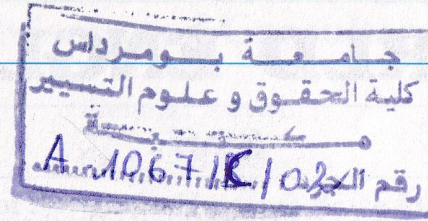 جامعة بومرداس
كلية الحقوق و علوم التسيير
مكتبة
رقم الجرد A 1067/K/02